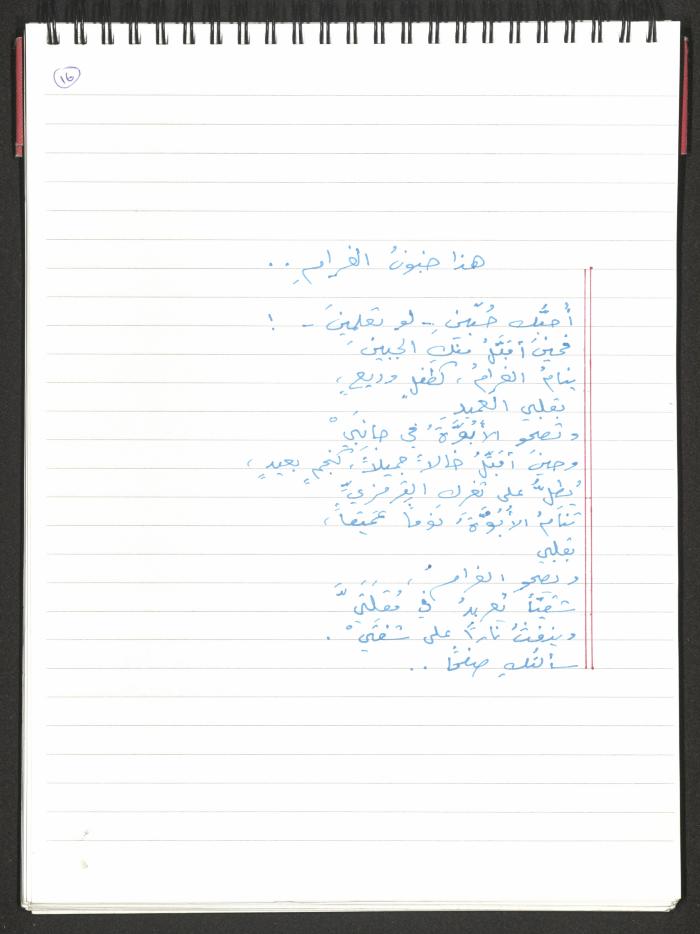 ١٦
هذا جنونُ الغرامِ ..
أُحبُّك حُبّينِ - لو تعلمينَ - !
فحينَ أُقبّلُ منكِ الجبينَ
ينامُ الغرامُ، كطفلٍ وديعٍ،
بقلبي العميدِ
وتصحو الأُبُوَّةُ في جانبَيْ
وحينَ أُقبّلُ خالاً جميلاً، كنجمٍ بعيدٍ،
يُطلُّ على ثغرك القرمزيِّ
تنامُ الأُبُوَّةُ نوماً عميقاً،
بقلبي
ويصحو الغرامُ،
شقيّاً يُعربدُ في مُقلَتَيَّ
وينفثُ ناراً على شفتَيْ .
سألتُكِ صفحًا ..